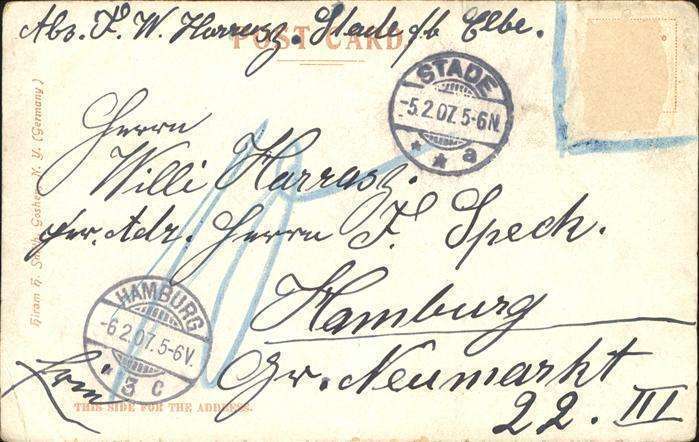 Abs. F. W. Harrasz. Stade a/d Elbe.
POST CARD
STADE
-5.2.07.5-6N.
* * a
Herrn
Willi Harrasz.
per. Adr. Herrn F. Speck.
Hamburg
Gr. Neumarkt
22. III
HAMBURG
-6.2.07.5-6V.
3 c
10
THIS SIDE FOR THE ADDRESS.
Hiram H. Smith, Goshen, N. Y. (Germany)